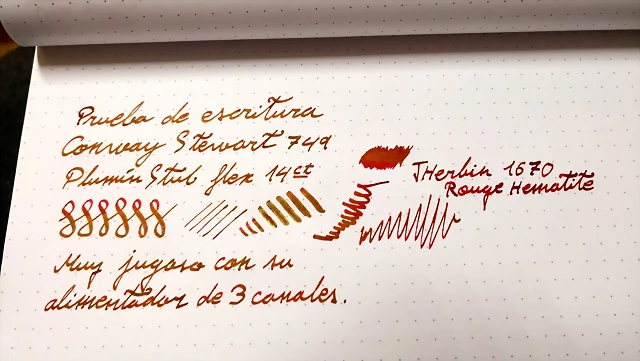 Prueba de escritura
Conway Stewart 749
Plumín Stub flex 14ct
JHerbin 1670
Rouge Hematite
Muy jugoso con su
alimentador de 3 canales.